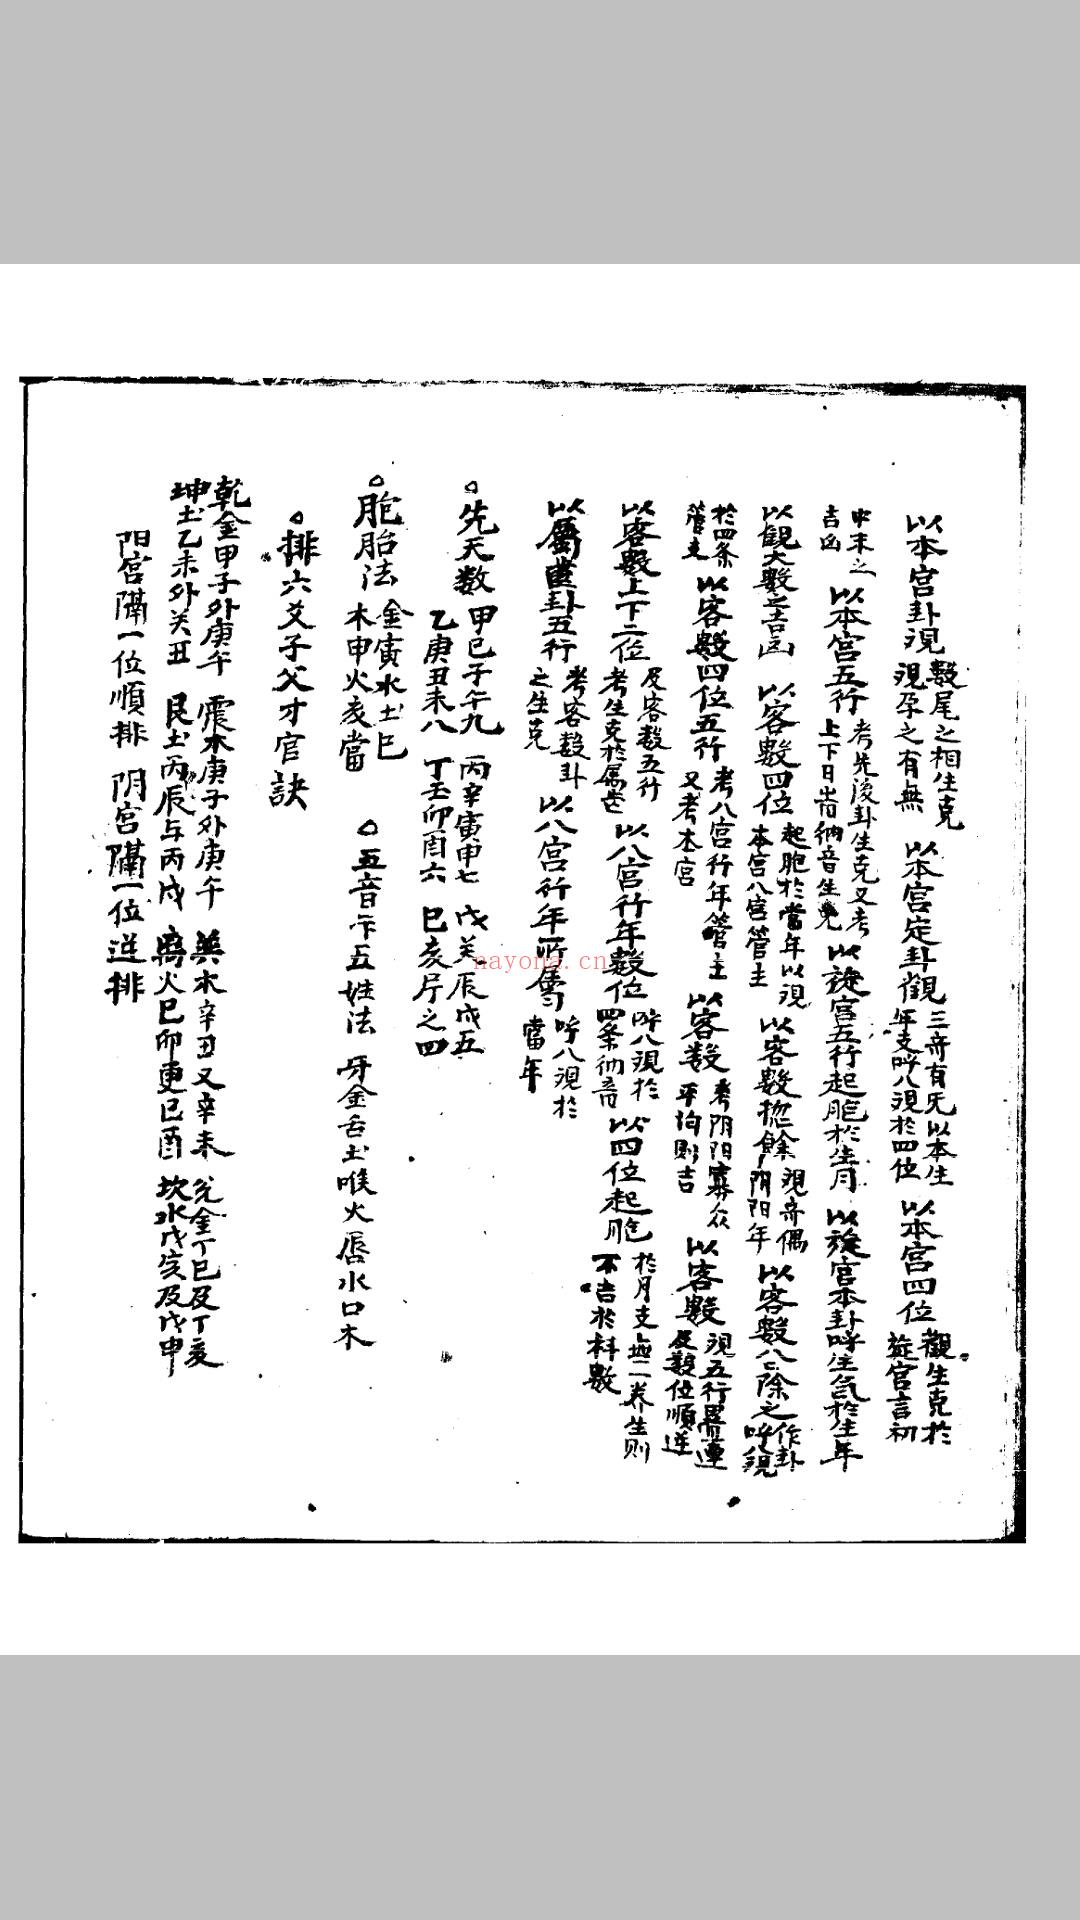 以本宫卦現 數尾之相生克 現孕之有無 以本宫定卦觀 三奇有旡以本生 年支呼八現於四位 以本宫四位 觀生克於 旋宫言初
中末之 吉凶 以本宫五行 考先後卦生克又考 上下日 納音生克 以旋宫五行起胞於生月 以旋宫本卦呼生氣於生年
以觀大數之吉凶 以客數四位 起胞於當年以現 本宫八宫管主 以客數揔餘 現奇偶 阴阳年 以客數八八除之 作卦 呼現
於四条 管主 以客數四位五行 考八宫行年管主 又考本宫 以客数 考阴阳寡众 平均則吉 以客數 現五行 連 及數位順逆
以客數上下二位 及客数五行 考生克於属世 以八宫行年數位 呼八現於 四条納音 以四位起胞 於月支 二养生则 不吉於科數
以爵世卦五行 考客数卦 之生克 以八宫行年所属 呼八現於 當年
先天数 甲己子午九 乙庚丑未八 丙辛寅申七 丁壬卯酉六 戊癸辰戌五 巳亥斤之四
胞胎法 金寅水土巳 木申火亥當 五音卞五姓法 牙金舌土喉火唇水口木
排六爻子父才官訣
乾金甲子外庚午 震木庚子外庚午 巽木辛丑又辛未 兑金丁巳及丁亥
坤土乙未外关丑 艮土丙辰与丙戌 离火巳卯更已酉 坎水戊寅及戊申
阳宫隔一位順排 阴宫隔一位逆排
nayona.cn